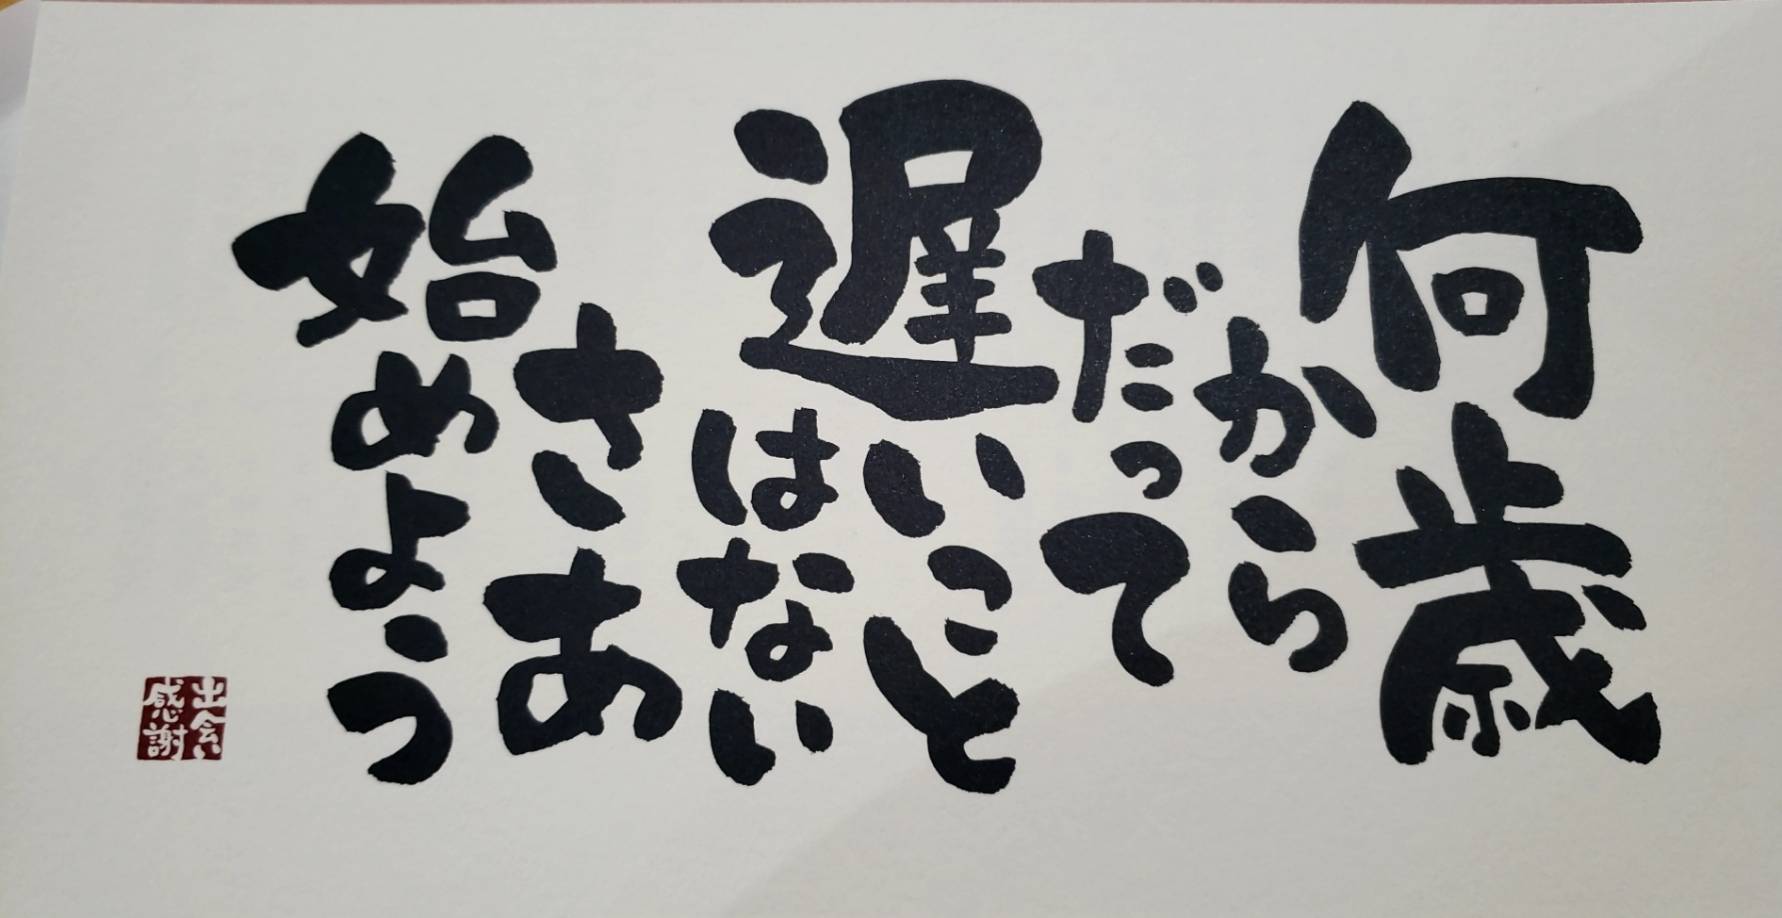 何歳
から
だって
遅いこと
はない
さあ
始めよう
出会い
感謝